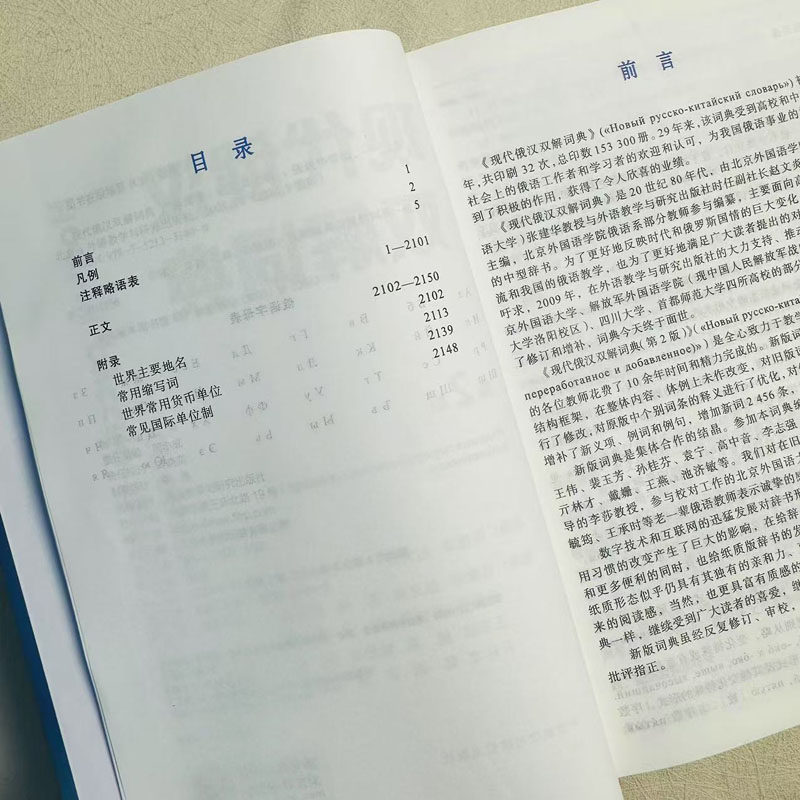 目 录
前言 1
凡例 2
注释略语表 5
正文 1—2101
附录 2102—2150
世界主要地名 2102
常用缩写词 2113
世界常用货币单位 2139
常见国际单位制 2148
前 言
《现代俄汉双解词典》(«Новый русско-китайский словарь»)
年,共印刷 32 次,总印数 153 300 册。29 年来,该词典受到高校和中
社会上的俄语工作者和学习者的欢迎和认可,为我国俄语事业的
到了积极的作用,获得了令人欣喜的业绩。
《现代俄汉双解词典》是 20 世纪 80 年代,由北京外国语学
语大学)张建华教授与外语教学与研究出版社时任副社长赵文炎
主编,北京外国语学院俄语系部分教师参与编纂,主要面向高
的中型辞书。为了更好地反映时代和俄罗斯国情的巨大变化
流和我国的俄语教学,也为了更好地满足广大读者提出的对
吁求,2009 年,在外语教学与研究出版社的大力支持、推动
京外国语大学、解放军外国语学院(现中国人民解放军战
大学洛阳校区)、四川大学、首都师范大学四所高校的部分
了修订和增补,词典今天终于面世。
《现代俄汉双解词典(第 2 版)》(«Новый русско-кит
переработанное и добавленное)») 是全心致力于教学
的各位教师花费了 10 余年时间和精力完成的。新版词
结构框架,在整体内容、体例上未作改变,对旧版词
行了修改,对原版中个别词条的释义进行了优化,对例
增补了新义项、例词和例句,增加新词 2 456 条,
新版词典是集体合作的结晶。参加本词典编
王伟、裴玉芳、孙桂芬、袁宁、高中音、李志强
亓林才、戴姗、王燕、池济敏等。我们对在旧
导的李莎教授,参与校对工作的北京外国语大
毓筠、王承时等老一辈俄语教师表示诚挚的
数字技术和互联网的迅猛发展对辞书形
用习惯的改变产生了巨大的影响,在给辞
和更多便利的同时,也给纸质版辞书的发
纸质形态似乎仍具有其独有的亲和力、可
来的阅读感,当然,也更具富有质感的
典一样,继续受到广大读者的喜爱,继
新版词典虽经反复修订、审校,
批评指正。